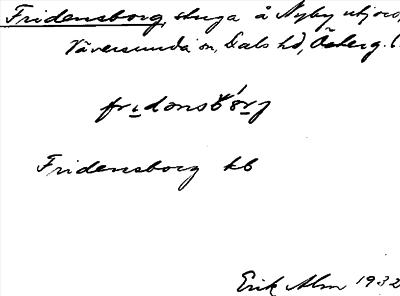 Fridensborg, stuga å Nyby utjord,
Väversunda sn, Dals hd, Österg. l.
fridensbörj
Fridensborg kb
Erik Alm 1932